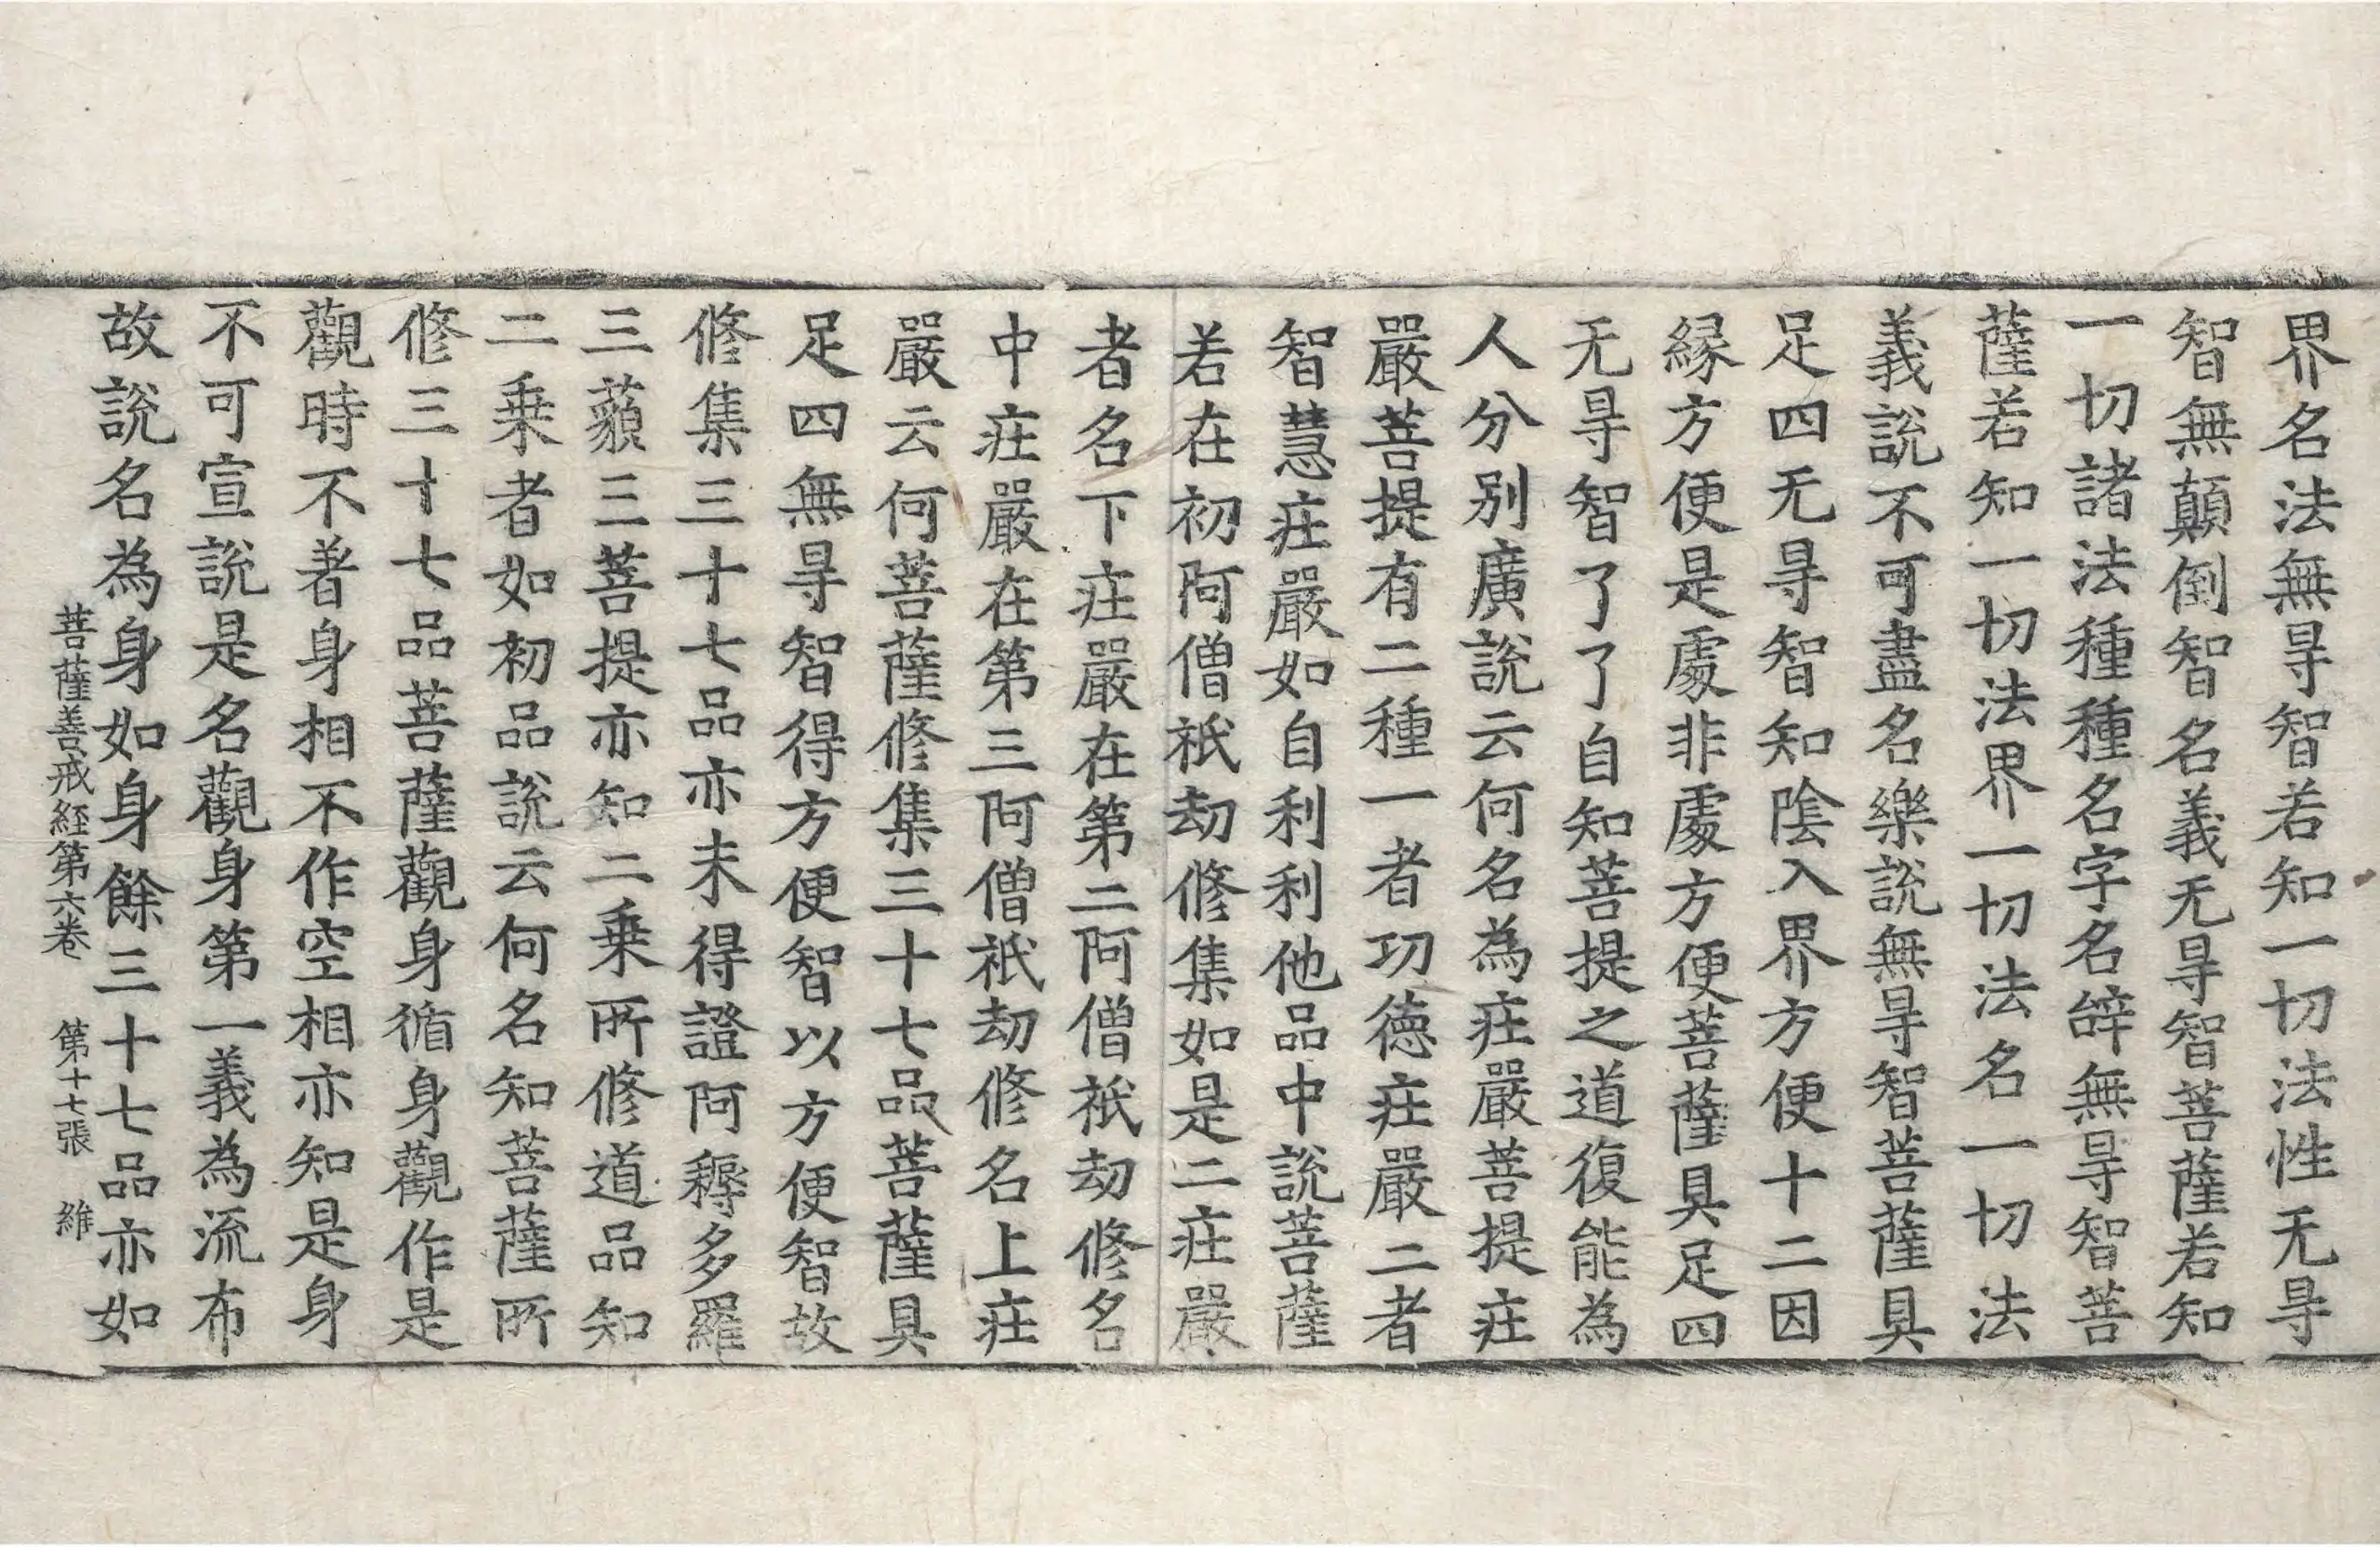 界名法無㝵智若知一切法性无㝵
智無顛倒智名義无㝵智菩薩若知
一切諸法種種名字名辝無㝵智菩
薩若知一切法界一切法名一切法
義說不可盡名樂說無㝵智菩薩具
足四无㝵智知陰入界方便十二因
緣方便是處非處方便菩薩具足四
无㝵智了了自知菩提之道復能為
人分別廣說云何名為庄嚴菩提庄
嚴菩提有二種一者功德庄嚴二者
智慧庄嚴如自利利他品中說菩薩
若在初阿僧祇劫修集如是二庄嚴
者名下庄嚴在第二阿僧祇劫修名
中庄嚴在第三阿僧祇劫修名上庄
嚴云何菩薩修集三十七品菩薩具
足四無㝵智得方便智以方便智故
修集三十七品亦未得證阿耨多羅
三藐三菩提亦知二乗所修道品知
二乗者如初品說云何名知菩薩所
修三十七品菩薩觀身循身觀作是
觀時不著身相不作空相亦知是身
不可宣說是名觀身第一義為流布
故說名為身如身餘三十七品亦如
菩薩善戒經第六卷 第十七張 維